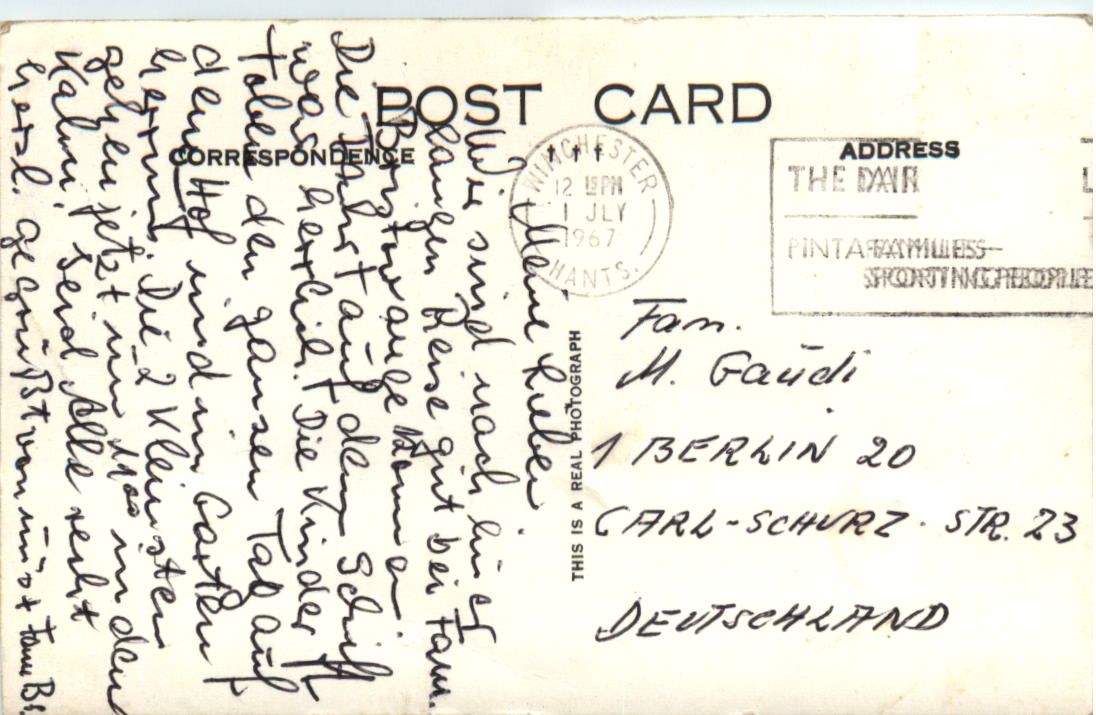 POST CARD
CORRESPONDENCE
ADDRESS
THIS IS A REAL PHOTOGRAPH
WINCHESTER
12 15 PM
1 JLY
1967
HANTS.
THE DAIR
L
PINTA FAMILIES
SPORTING PEOPLE
Meine Lieben
Wir sind nach einer
langen Reise gut bei Fam.
angekommen
Die Fahrt auf dem Schiff
war herrlich! Die Kinder
toben den ganzen Tag auf
dem Hof und im Garten
herum. Die 2 Kleinsten
gehen jetzt um 1100 in den
Kahn! Seid Alle recht
herzl. gegrüßt von uns + Fam B.
Fam.
M. Gaudi
1 BERLIN 20
CARL-SCHURZ-STR. 23
DEUTSCHLAND